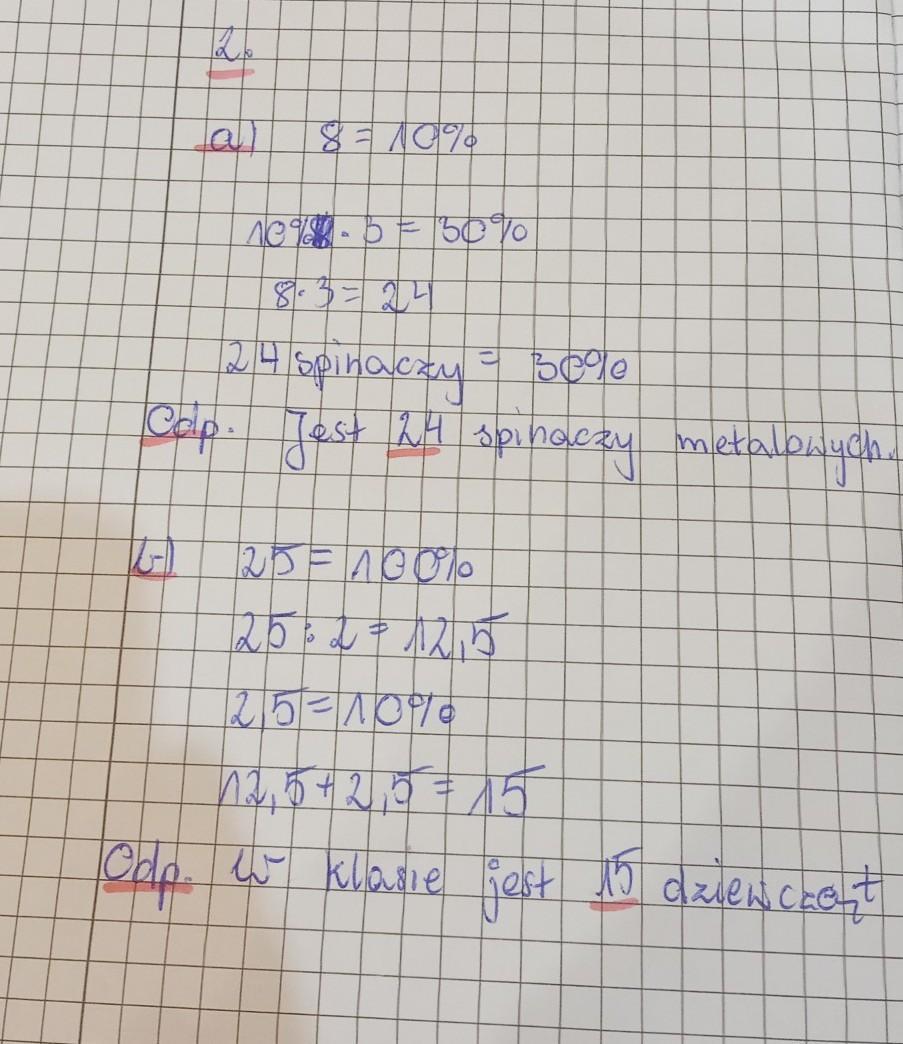 2.
a) 8 = 10%
10% · 3 = 30%
8 · 3 = 24
24 spinaczy = 30%
Odp. Jest 24 spinaczy metalowych.
b) 25 = 100%
25 : 2 = 12,5
2,5 = 10%
12,5 + 2,5 = 15
Odp. W klasie jest 15 dziewcząt